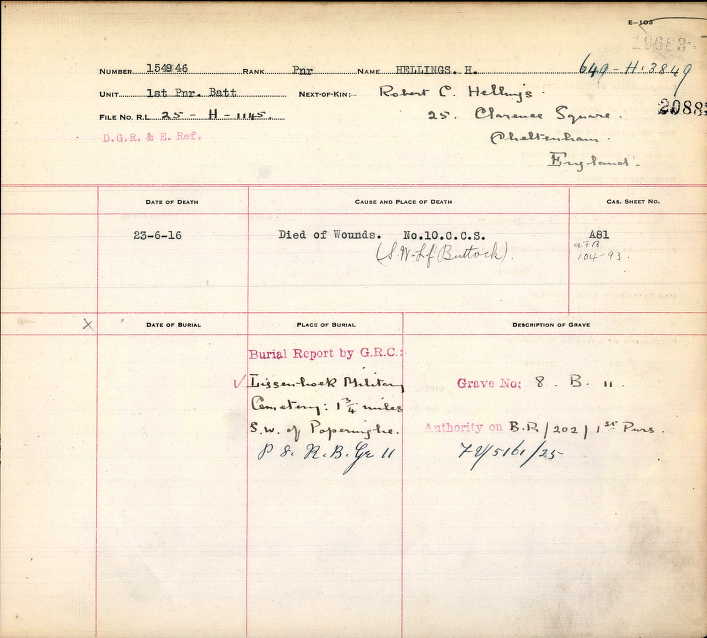 E-103
NUMBER 154946 RANK Pnr NAME HELLINGS. H. 649-H-3849
UNIT 1st Pnr. Batt NEXT-OF-KIN:- Robert C. Hellings.
2088
FILE NO. R.L. 25 - H - 1145. 25. Clarence Square.
D.G.R. & E. Ref. Cheltenham.
England.
DATE OF DEATH CAUSE AND PLACE OF DEATH CAS. SHEET NO.
23-6-16 Died of Wounds. No.10.C.C.S. A81
(S.W. Lf Buttock). 104-93.
X DATE OF BURIAL PLACE OF BURIAL DESCRIPTION OF GRAVE
Burial Report by G.R.C.:
Lissenhoek Military Grave No: 8. B. 11
Cemetery: 1 3/4 miles
S.W. of Poperinghe. Authority on B.R/202/1st Pnrs.
P 8. R.B. Gr 11 72/5161/25